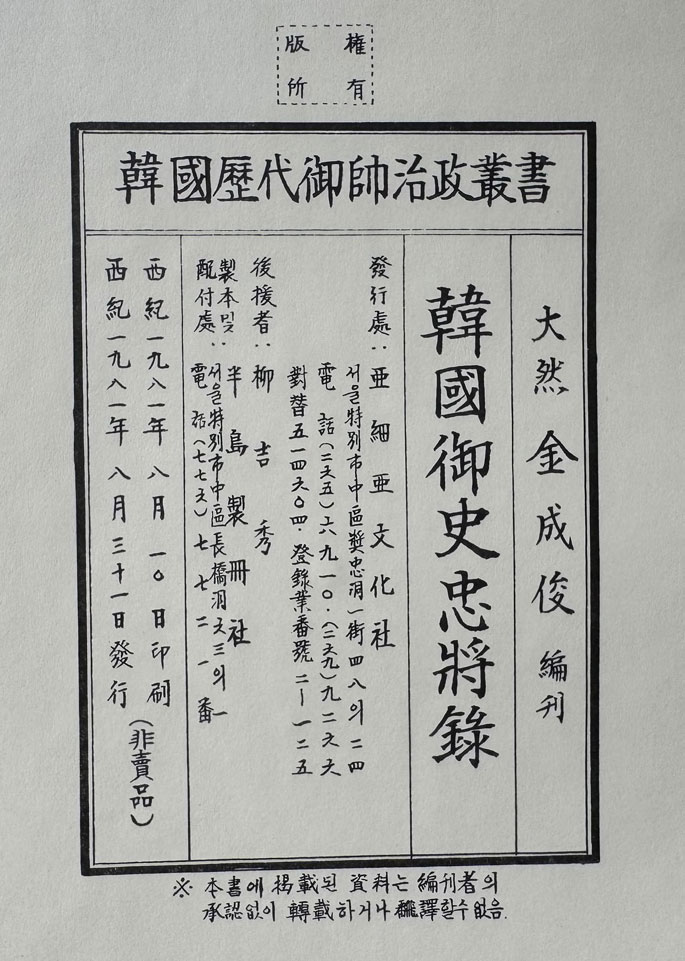 版權
所有
韓國歷代御帥治政叢書
大然 金成俊 編刊
韓國御史忠將錄
發行處: 亜細亜文化社
서울特別市中區奬忠洞一街四八의二四
電話(二六五)六九一○·(二六九)九二六六
對替五一四六○四·登錄業番號 二ー一二五
後援者: 柳吉秀
製本및
配付處: 半島製冊社
서울特別市中區長橋洞六三의一
電話(七七六)七七二一番
西紀一九八一年 八月 一○日 印刷
西紀一九八一年 八月 三十一日 發行
(非賣品)
※ 本書에 揭載된 資料는 編刊者의
承認없이 轉載하거나 飜譯할수 없음.